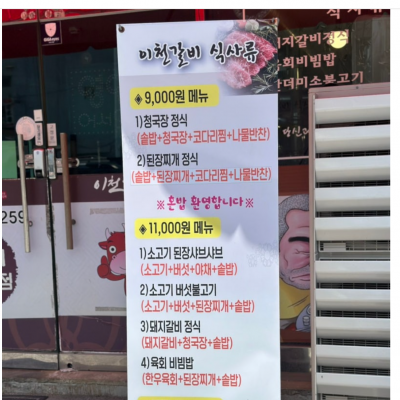 이천갈비 식사류
◈ 9,000원 메뉴
1)청국장 정식
(솥밥+청국장+코다리찜+나물반찬)
2)된장찌개 정식
(솥밥+된장찌개+코다리찜+나물반찬)
※혼밥 환영합니다※
◈ 11,000원 메뉴
1)소고기 된장샤브샤브
(소고기+버섯+야채+솥밥)
2)소고기 버섯불고기
(소고기+버섯+된장찌개+솥밥)
3)돼지갈비 정식
(돼지갈비+청국장+솥밥)
4)육회 비빔밥
(한우육회+된장찌개+솥밥)
식사류
돼지갈비정식
육회비빔밥
더미소불고기
이천
259
점